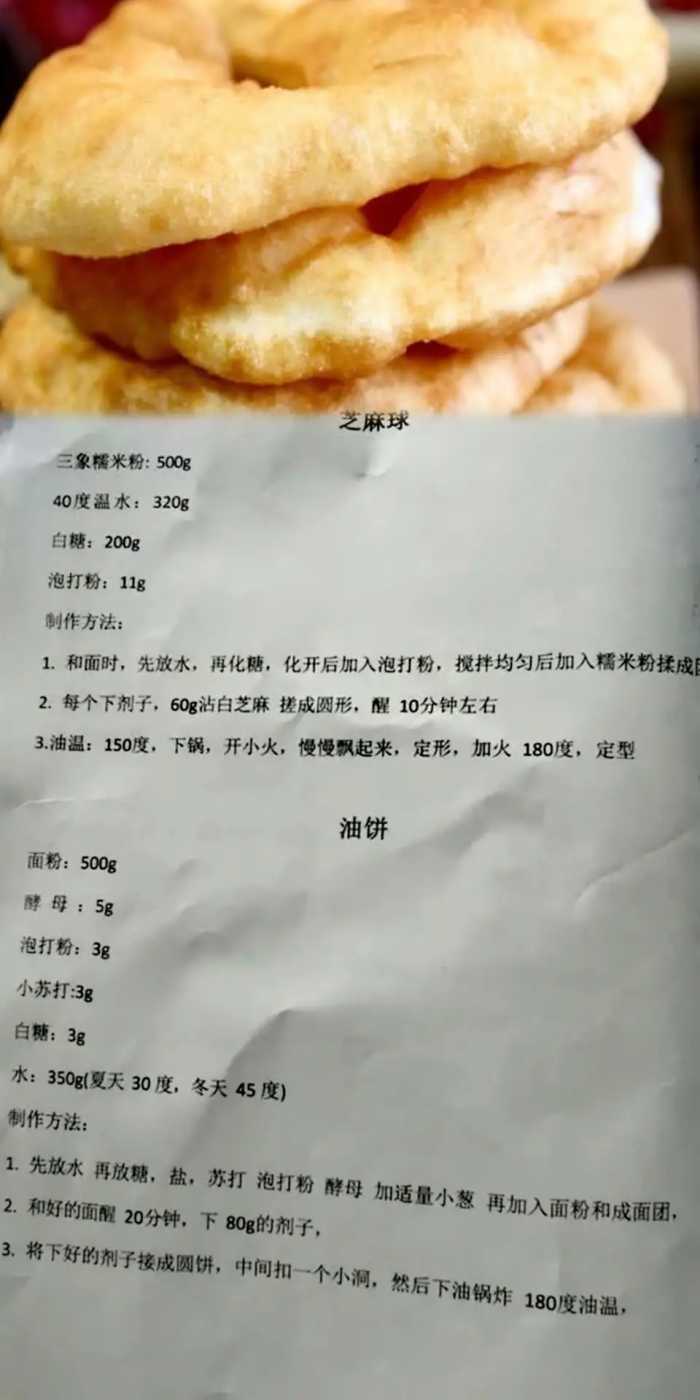 芝麻球
三象糯米粉: 500g
40度温水：320g
白糖：200g
泡打粉：11g
制作方法：
1. 和面时，先放水，再化糖，化开后加入泡打粉，搅拌均匀后加入糯米粉揉成
2. 每个下剂子，60g沾白芝麻 搓成圆形，醒 10分钟左右
3.油温：150度，下锅，开小火，慢慢飘起来，定形，加火 180度，定型
油饼
面粉：500g
酵 母 ：5g
泡打粉：3g
小苏打:3g
白糖：3g
水：350g(夏天 30 度，冬天 45 度)
制作方法：
1. 先放水 再放糖，盐，苏打 泡打粉 酵母 加适量小葱 再加入面粉和成面团，
2. 和好的面醒 20分钟，下 80g的剂子，
3. 将下好的剂子接成圆饼，中间扣一个小洞，然后下油锅炸 180度油温，